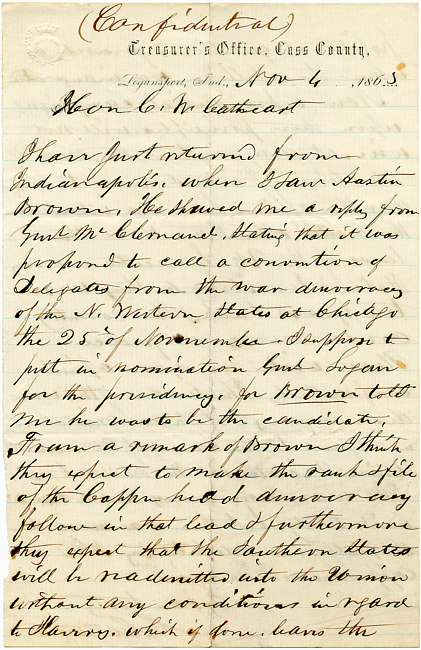 (Confidential)
Treasurer's Office, Cass County,
Logansport, Ind., Nov 4, 1863
Hon C. W. Cathcart
I have Just returned from
Indianapolis, when I saw Austin
Brown, He showed me a reply from
Genl McClernand, stating that it was
proposed to call a convention of
Delegates from the war democracy
of the N. Western States at Chicago
the 25th of November I suppose to
put in nomination Genl Logan
for the presidency, for Brown told
me he was to be the candidate.
From a remark of Brown I think
they expect to make the rank & file
of the Copper head democracy
follow in that lead & furthermore
they expect that the Southern States
will be readmitted into the Union
without any conditions in regard
to Slavery. which if done. leaves the